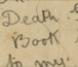 Death.
Book
to my